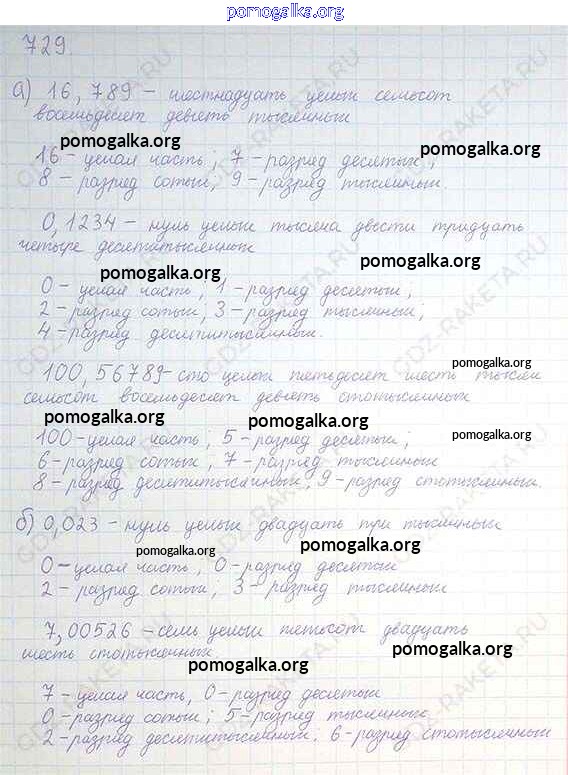 pomogalka.org
729.
а) 16,789 – шестнадцать целых семьсот
восемьдесят девять тысячных
pomogalka.org
pomogalka.org
16 – целая часть; 7 – разряд десятых;
8 – разряд сотых; 9 – разряд тысячных.
0,1234 – нуль целых тысяча двести тридцать
четыре десятитысячных
pomogalka.org
pomogalka.org
0 – целая часть, 1 – разряд десятых;
2 – разряд сотых; 3 – разряд тысячных;
4 – разряд десятитысячных.
pomogalka.org
100,56789 – сто целых пятьдесят шесть тысяч
семьсот восемьдесят девять стотысячных
pomogalka.org
pomogalka.org
100 – целая часть; 5 – разряд десятых;
pomogalka.org
6 – разряд сотых; 7 – разряд тысячных
8 – разряд десятитысячных, 9 – разряд стотысячных.
б) 0,023 – нуль целых двадцать три тысячных
pomogalka.org
pomogalka.org
0 – целая часть, 0 – разряд десятых
2 – разряд сотых; 3 – разряд тысячных
7,00526 – семь целых пятьсот двадцать
шесть стотысячных
pomogalka.org
pomogalka.org
7 – целая часть, 0 – разряд десятых
0 – разряд сотых; 5 – разряд тысячных
2 – разряд десятитысячных. 6 – разряд стотысячных
GDZ-RAKETA.RU